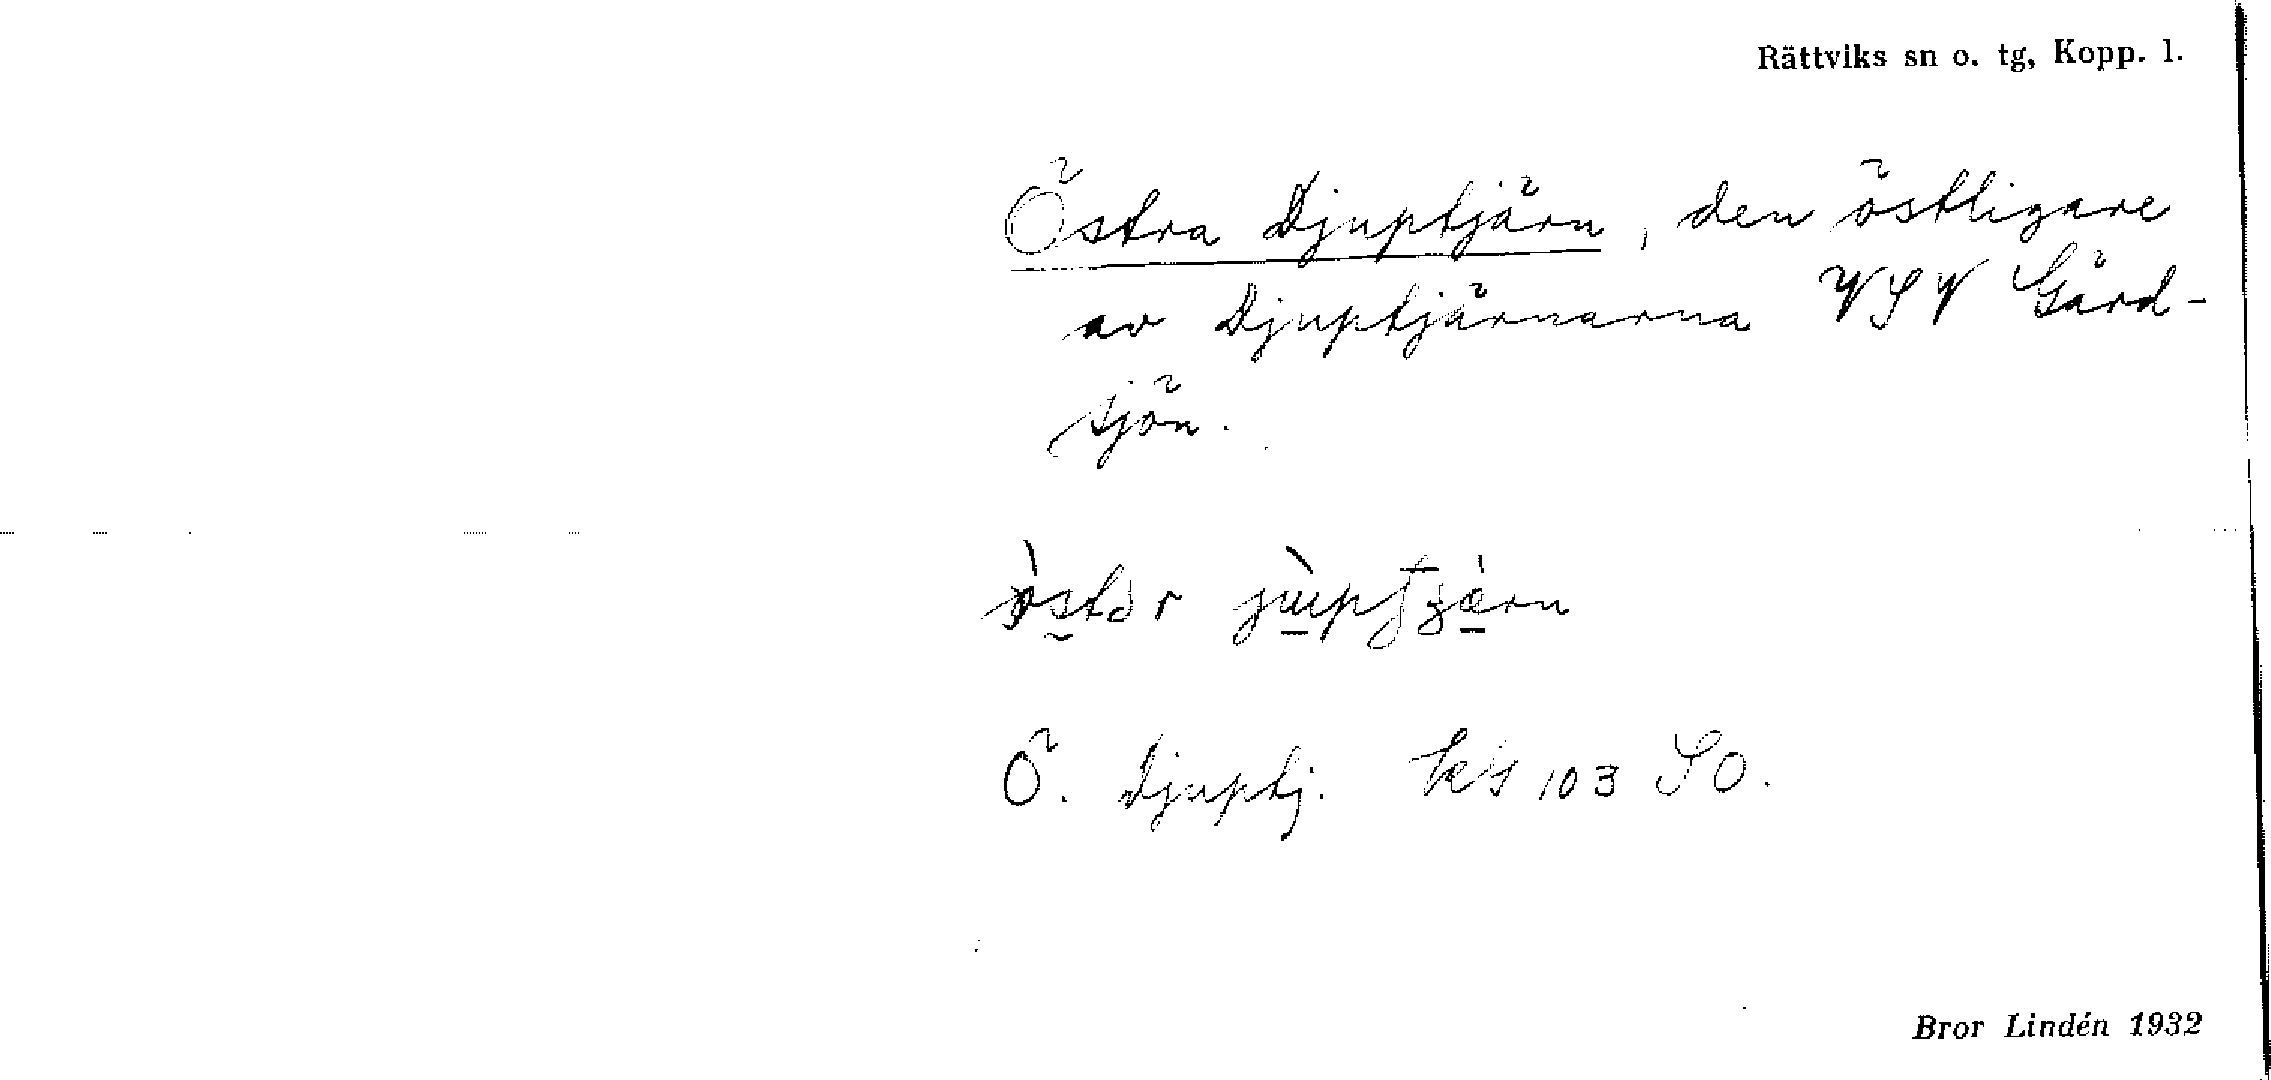 Rättviks sn o. tg, Kopp. l.
Östra Djuptjärn, den östligare
av Djuptjärnarna VSV Gärd-
sjön.
Ö. Djuptj. kbl 103 SO.
Bror Lindén 1932